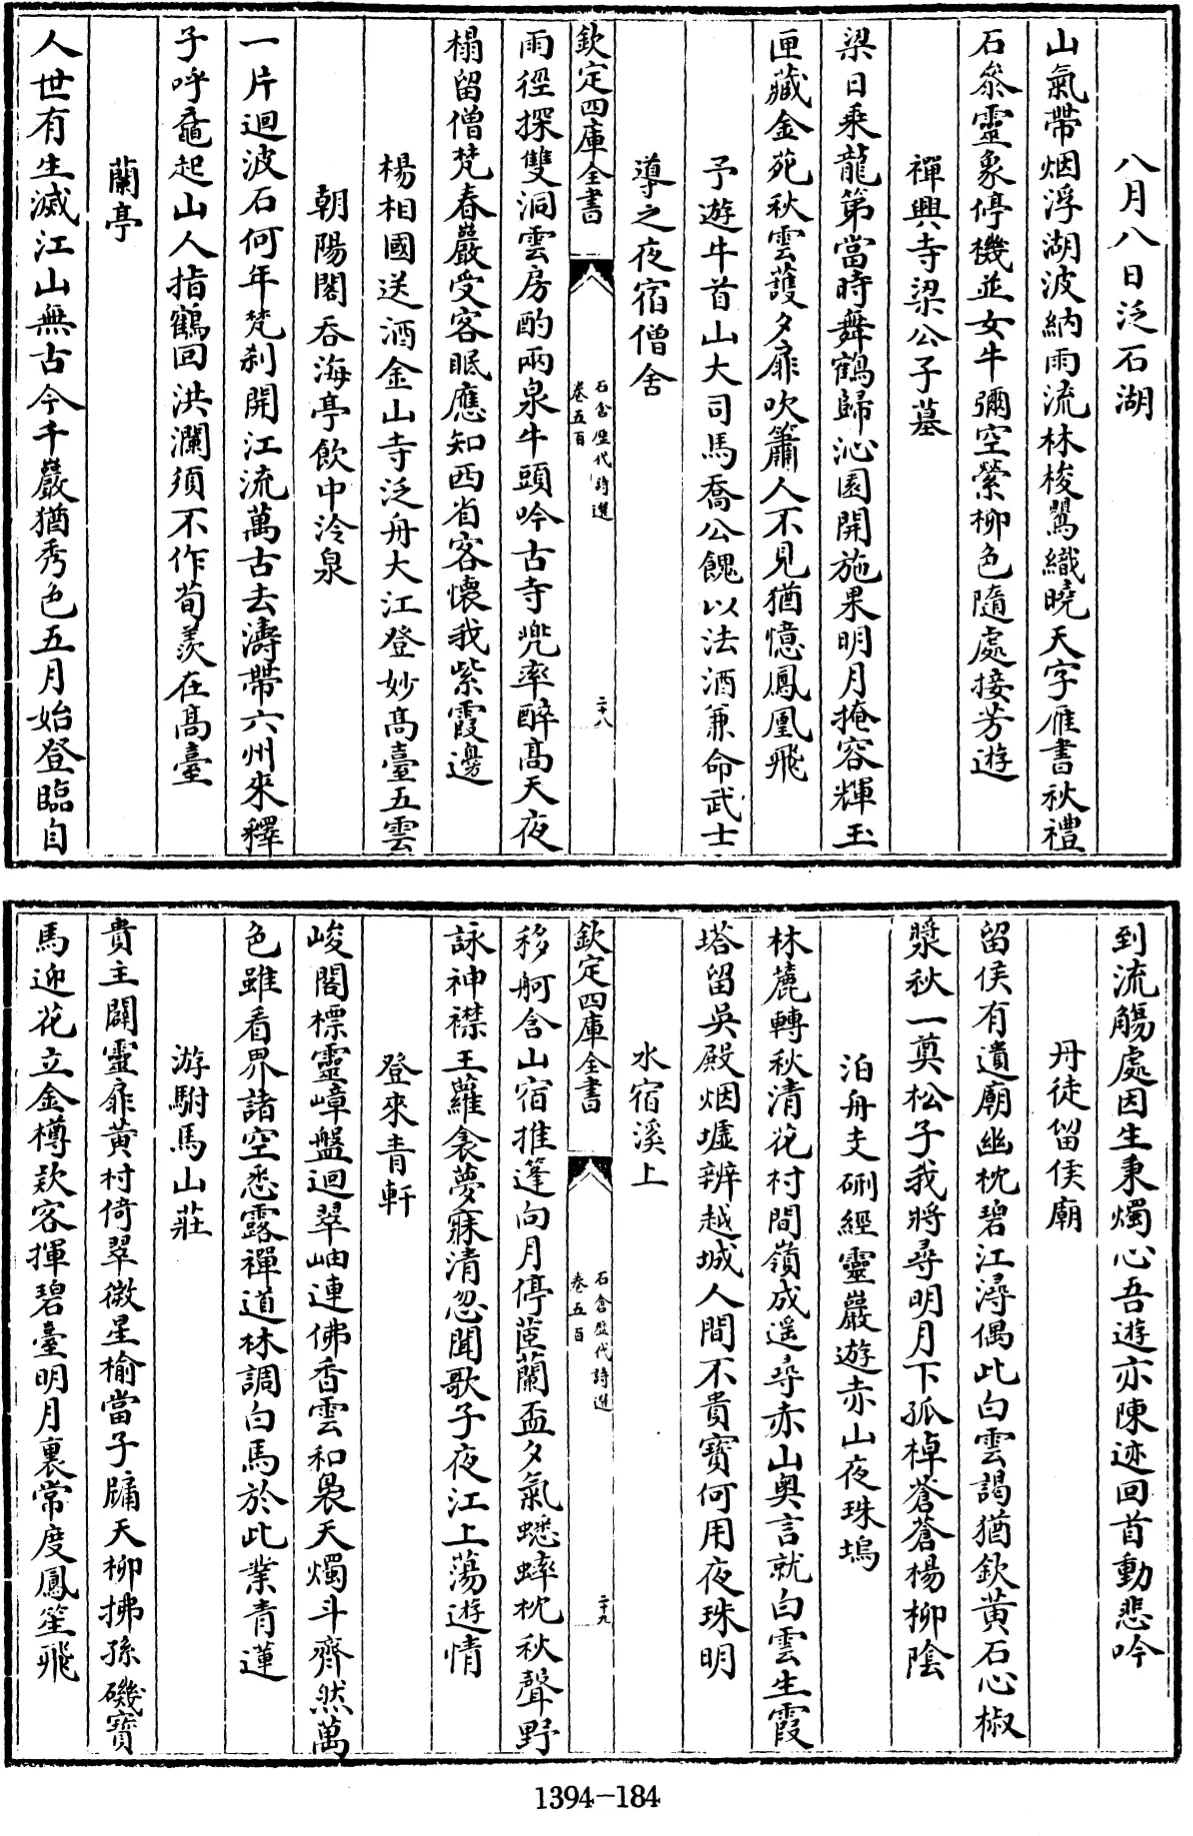 八月八日泛石湖
山氣帶烟浮湖波納雨流林梭鶯織曉天字雁書秋禮
石叅靈象停機並女牛彌空縈柳色隨處接芳遊
禪興寺梁公子墓
梁日乘龍第當時舞鶴歸沁園開施果明月掩容輝玉
匣藏金苑秋雲護夕扉吹簫人不見猶憶鳳凰飛
予遊牛首山大司馬喬公餽以法酒兼命武士
導之夜宿僧舍
欽定四庫全書
石倉歷代詩選
卷五百
二十八
雨徑探雙洞雲房酌兩泉牛頭吟古寺兜率醉高天夜
榻留僧梵春巖受客眠應知西省客懷我紫霞邊
楊相國送酒金山寺泛舟大江登妙高臺五雲
朝陽閣吞海亭飲中泠泉
一片迴波石何年梵刹開江流萬古去濤帶六州來釋
子呼黿起山人指鶴回洪瀾須不作荀羨在高臺
蘭亭
人世有生滅江山無古今千巖猶秀色五月始登臨自
到流觴處因生秉燭心吾遊亦陳迹回首動悲吟
丹徒留侯廟
留侯有遺廟幽枕碧江潯偶此白雲謁猶欽黃石心椒
漿秋一奠松子我將尋明月下孤棹蒼蒼楊柳陰
泊舟支硎經靈巖遊赤山夜珠塢
林麓轉秋清花村間嶺成遥尋赤山奧言就白雲生霞
塔留吳殿烟墟辨越城人間不貴寳何用夜珠明
水宿溪上
欽定四庫全書
石倉歷代詩選
卷五百
二十九
移舸含山宿推篷向月停茝蘭盃夕氣蟋蟀枕秋聲野
詠神襟王蘿衾夢寐清忽聞歌子夜江上蕩遊情
登來青軒
峻閣標靈嶂盤迴翠岫連佛香雲和裊天燭斗齊然萬
色雖看界諸空悉露禪道林調白馬於此業青蓮
游駙馬山莊
貴主闢靈扉黃村倚翠微星榆當子牗天柳拂孫磯寳
馬迎花立金樽欵客揮碧臺明月裏常度鳳笙飛
1394-184